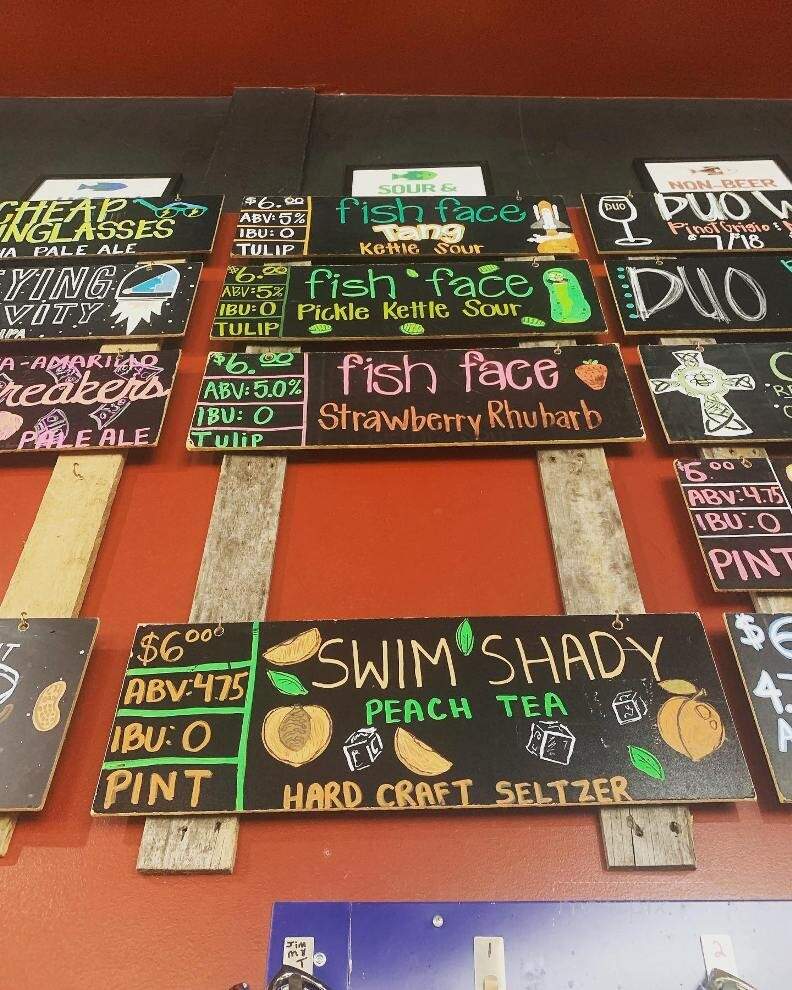 SOUR &
NON-BEER
CHEAP
PALE ALE
$6.00
ABV: 5%
IBU: 0
TULIP
fish face
Tang
Kettle Sour
DUO
DUO
$7/$18
VITY
IPA
$6.00
ABV: 5%
IBU: 0
TULIP
fish face
Pickle Kettle Sour
DUO
A-AMARILLO
reakers
PALE ALE
$6.00
ABV: 5.0%
IBU: 0
Tulip
fish face
Strawberry Rhubarb
$6.00
ABV: 4.75
IBU: 0
PINT
$6.00
ABV: 4.75
IBU: 0
PINT
SWIM SHADY
PEACH TEA
HARD CRAFT SELTZER
$6
1
2